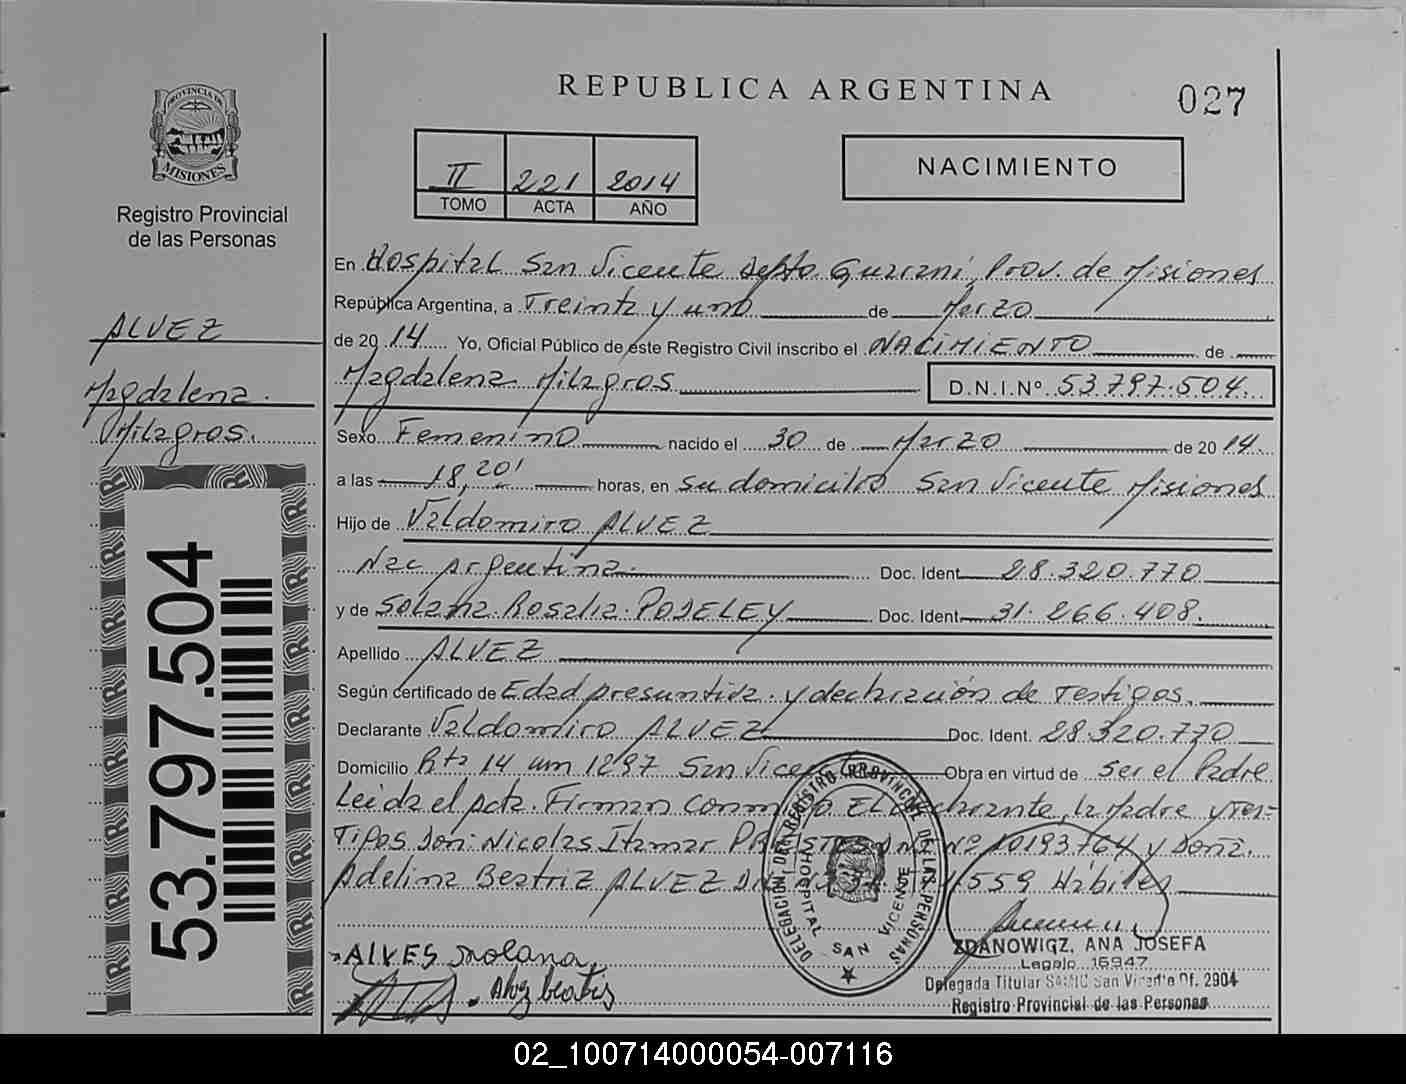 REPUBLICA ARGENTINA
027
PROVINCIA DE
MISIONES
Registro Provincial
de las Personas
II 221 2014
TOMO ACTA AÑO
NACIMIENTO
ALVEZ
Magdalena
Milagros.
53.797.504
En Hospital San Vicente Depto. Guaraní, Prov. de Misiones
República Argentina, a Treinta y uno de Marzo
de 20 14 Yo, Oficial Público de este Registro Civil inscribo el NACIMIENTO de
Magdalena Milagros D.N.I.Nº 53.797.504.
Sexo Femenino nacido el 30 de Marzo de 20 14.
a las 18,20' horas, en su domicilio San Vicente Misiones
Hijo de Valdomiro ALVEZ
Nac Argentina. Doc. Ident. 28.320.770
y de Solana. Rosalia. POSELEY Doc. Ident. 31.266.408.
Apellido ALVEZ
Según certificado de Edad presuntiva. y declaración de Testigos.
Declarante Valdomiro ALVEZ Doc. Ident. 28.320.770
Domicilio Rta 14 km 1297 San Vicente Obra en virtud de ser el Padre
Leida el Acta. Firman conmigo El declarante, la Madre y Tes=
Tigos Don: Nicolas Itamar DNI Nº 10193764 y Doña.
Adelina Beatriz ALVEZ 559 Hábiles
DELEGACION DEL REGISTRO PROVINCIAL DE LAS PERSONAS
HOSPITAL SAN VICENTE
ALVES Solana
Alvez beatriz
ZDANOWICZ, ANA JOSEFA
Legajo 16947
Delegada Titular San Vicente Of. 2904
Registro Provincial de las Personas
02_100714000054-007116